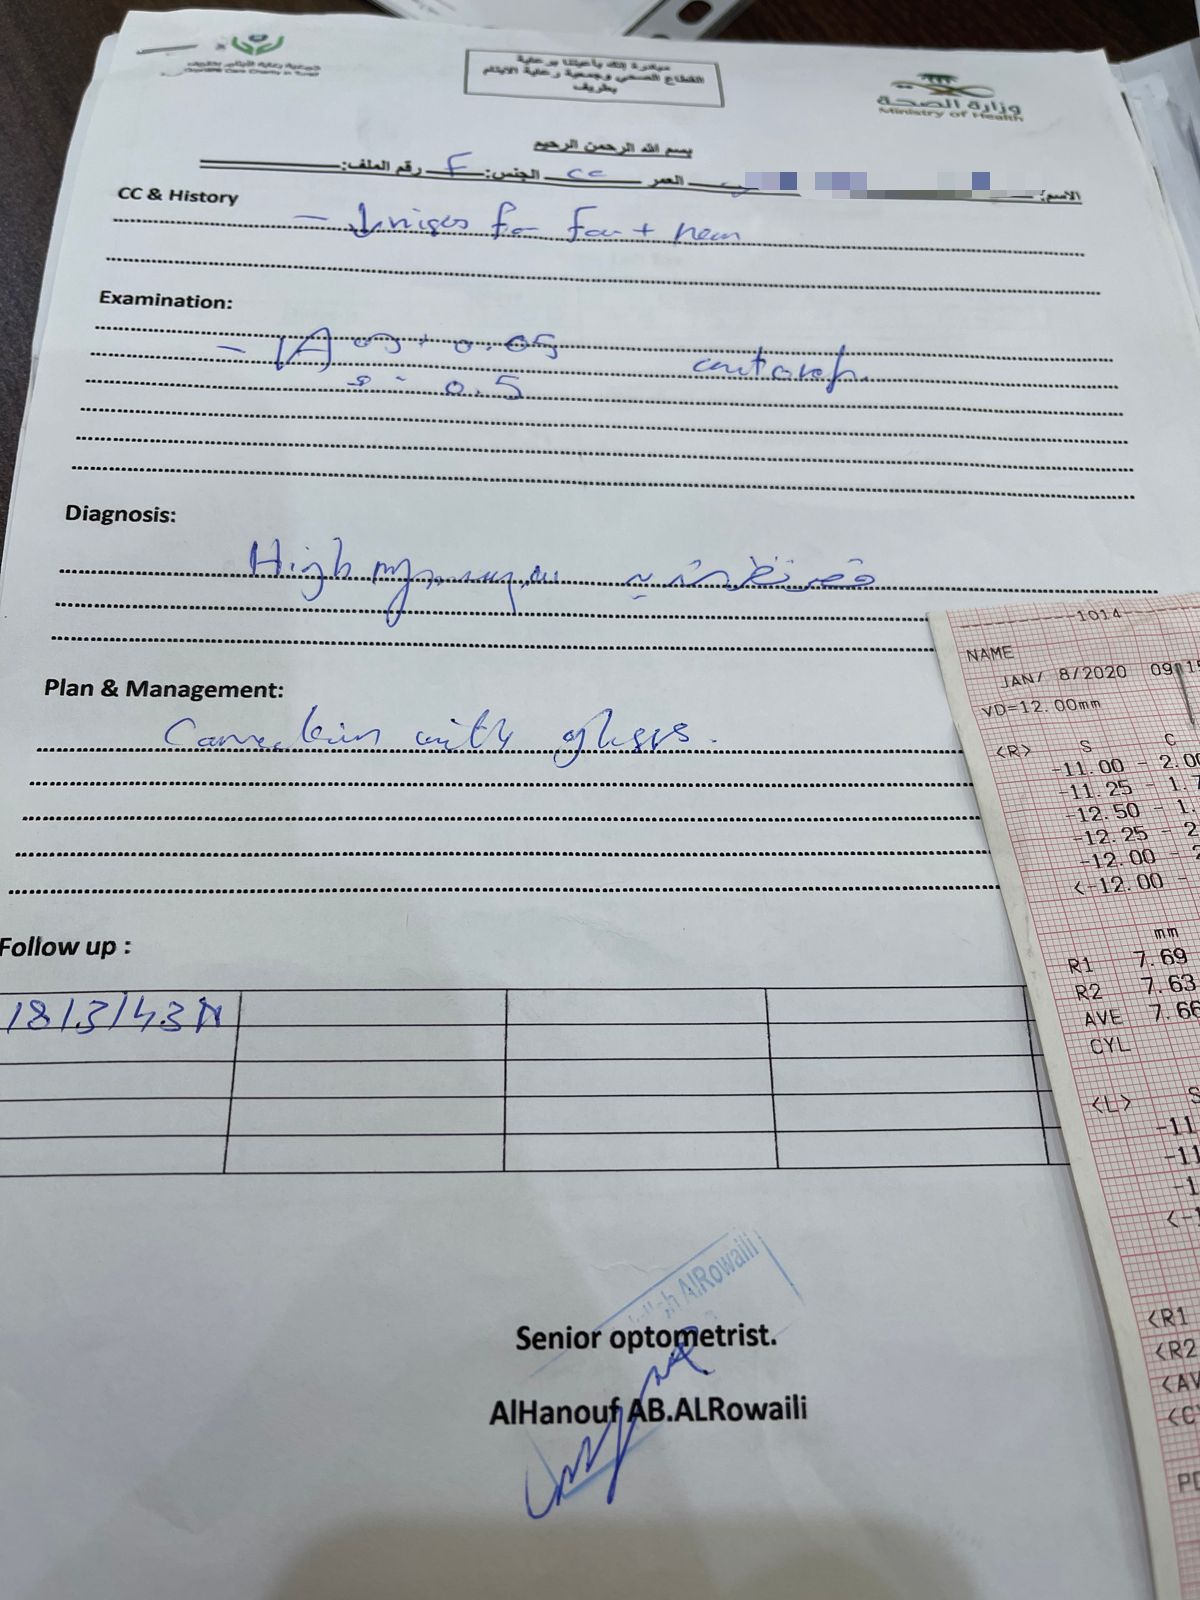 جمعية رعاية الأيتام بطريف
Orphans Care Charity in Turaif
القطاع الصحي وجمعية رعاية الايتام
بطريف
وزارة الصحة
Ministry of Health
بسم الله الرحمن الرحيم
الاسم: العمر الجنس: F رقم الملف:
CC & History
for far + near
Examination:
- VA 0.05
0.5
Diagnosis:
High قصر نظر
Plan & Management:
Correction with glasses.
Follow up :
18/3/43
Senior optometrist.
AlRowaili
AlHanouf AB.ALRowaili
1014
NAME
JAN/ 8/2020 09
VD=12.00mm
<R> S C
-11.00 - 2.00
-11.25 - 1.7
-12.50 - 1.
-12.25 - 2
-12.00 - 2
<-12.00 -
mm
R1 7.69
R2 7.63
AVE 7.66
CYL
<L> S
-11
-11
-1
<-1
<R1
<R2
<AV
<C
PD